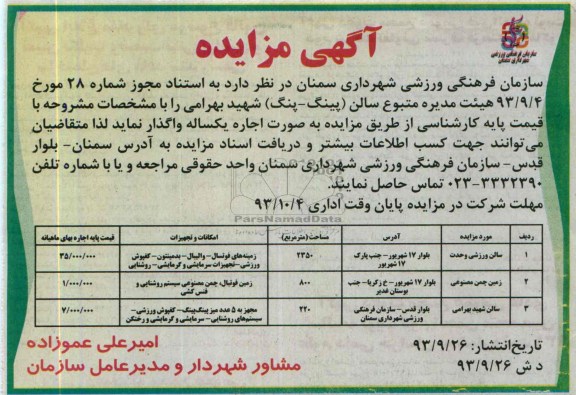 سازمان فرهنگی ورزشی
شهرداری سمنان
آگهی مزایده
سازمان فرهنگی ورزشی شهرداری سمنان در نظر دارد به استناد مجوز شماره ۲۸ مورخ
۹۳/۹/۴ هیئت مدیره متبوع سالن (پینگ-پنگ) شهید بهرامی را با مشخصات مشروحه با
قیمت پایه کارشناسی از طریق مزایده به صورت اجاره یکساله واگذار نماید لذا متقاضیان
می‌توانند جهت کسب اطلاعات بیشتر و دریافت اسناد مزایده به آدرس سمنان- بلوار
قدس- سازمان فرهنگی ورزشی شهرداری سمنان واحد حقوقی مراجعه و یا با شماره تلفن
۰۲۳-۳۳۳۲۳۹۰ تماس حاصل نمایند.
مهلت شرکت در مزایده پایان وقت اداری ۹۳/۱۰/۴
ParsNamadData
ردیف مورد مزایده آدرس مساحت (مترمربع) امکانات و تجهیزات قیمت پایه اجاره بهای ماهیانه
۱ سالن ورزشی وحدت بلوار ۱۷ شهریور- جنب پارک ۱۷ شهریور ۲۳۵۰ زمینه‌های فوتسال- والیبال- بدمینتون- کفپوش ورزشی-تجهیزات سرمایشی و گرمایشی- روشنایی ۳۵/۰۰۰/۰۰۰
۲ زمین چمن مصنوعی بلوار ۱۷ شهریور- خ زکریا- جنب بوستان غدیر ۸۰۰ زمین فوتبال، چمن مصنوعی سیستم روشنایی و فنس کشی ۱/۰۰۰/۰۰۰
۳ سالن شهید بهرامی بلوار قدس- سازمان فرهنگی ورزشی شهرداری سمنان ۲۲۰ مجهز به ۵ عدد میز پینگ‌پینگ- کفپوش ورزشی- سیستم‌های روشنایی- سرمایشی و گرمایشی و رختکن ۷/۰۰۰/۰۰۰
تاریخ انتشار: ۹۳/۹/۲۶
د ش ۹۳/۹/۲۶
امیرعلی عموزاده
مشاور شهردار و مدیرعامل سازمان